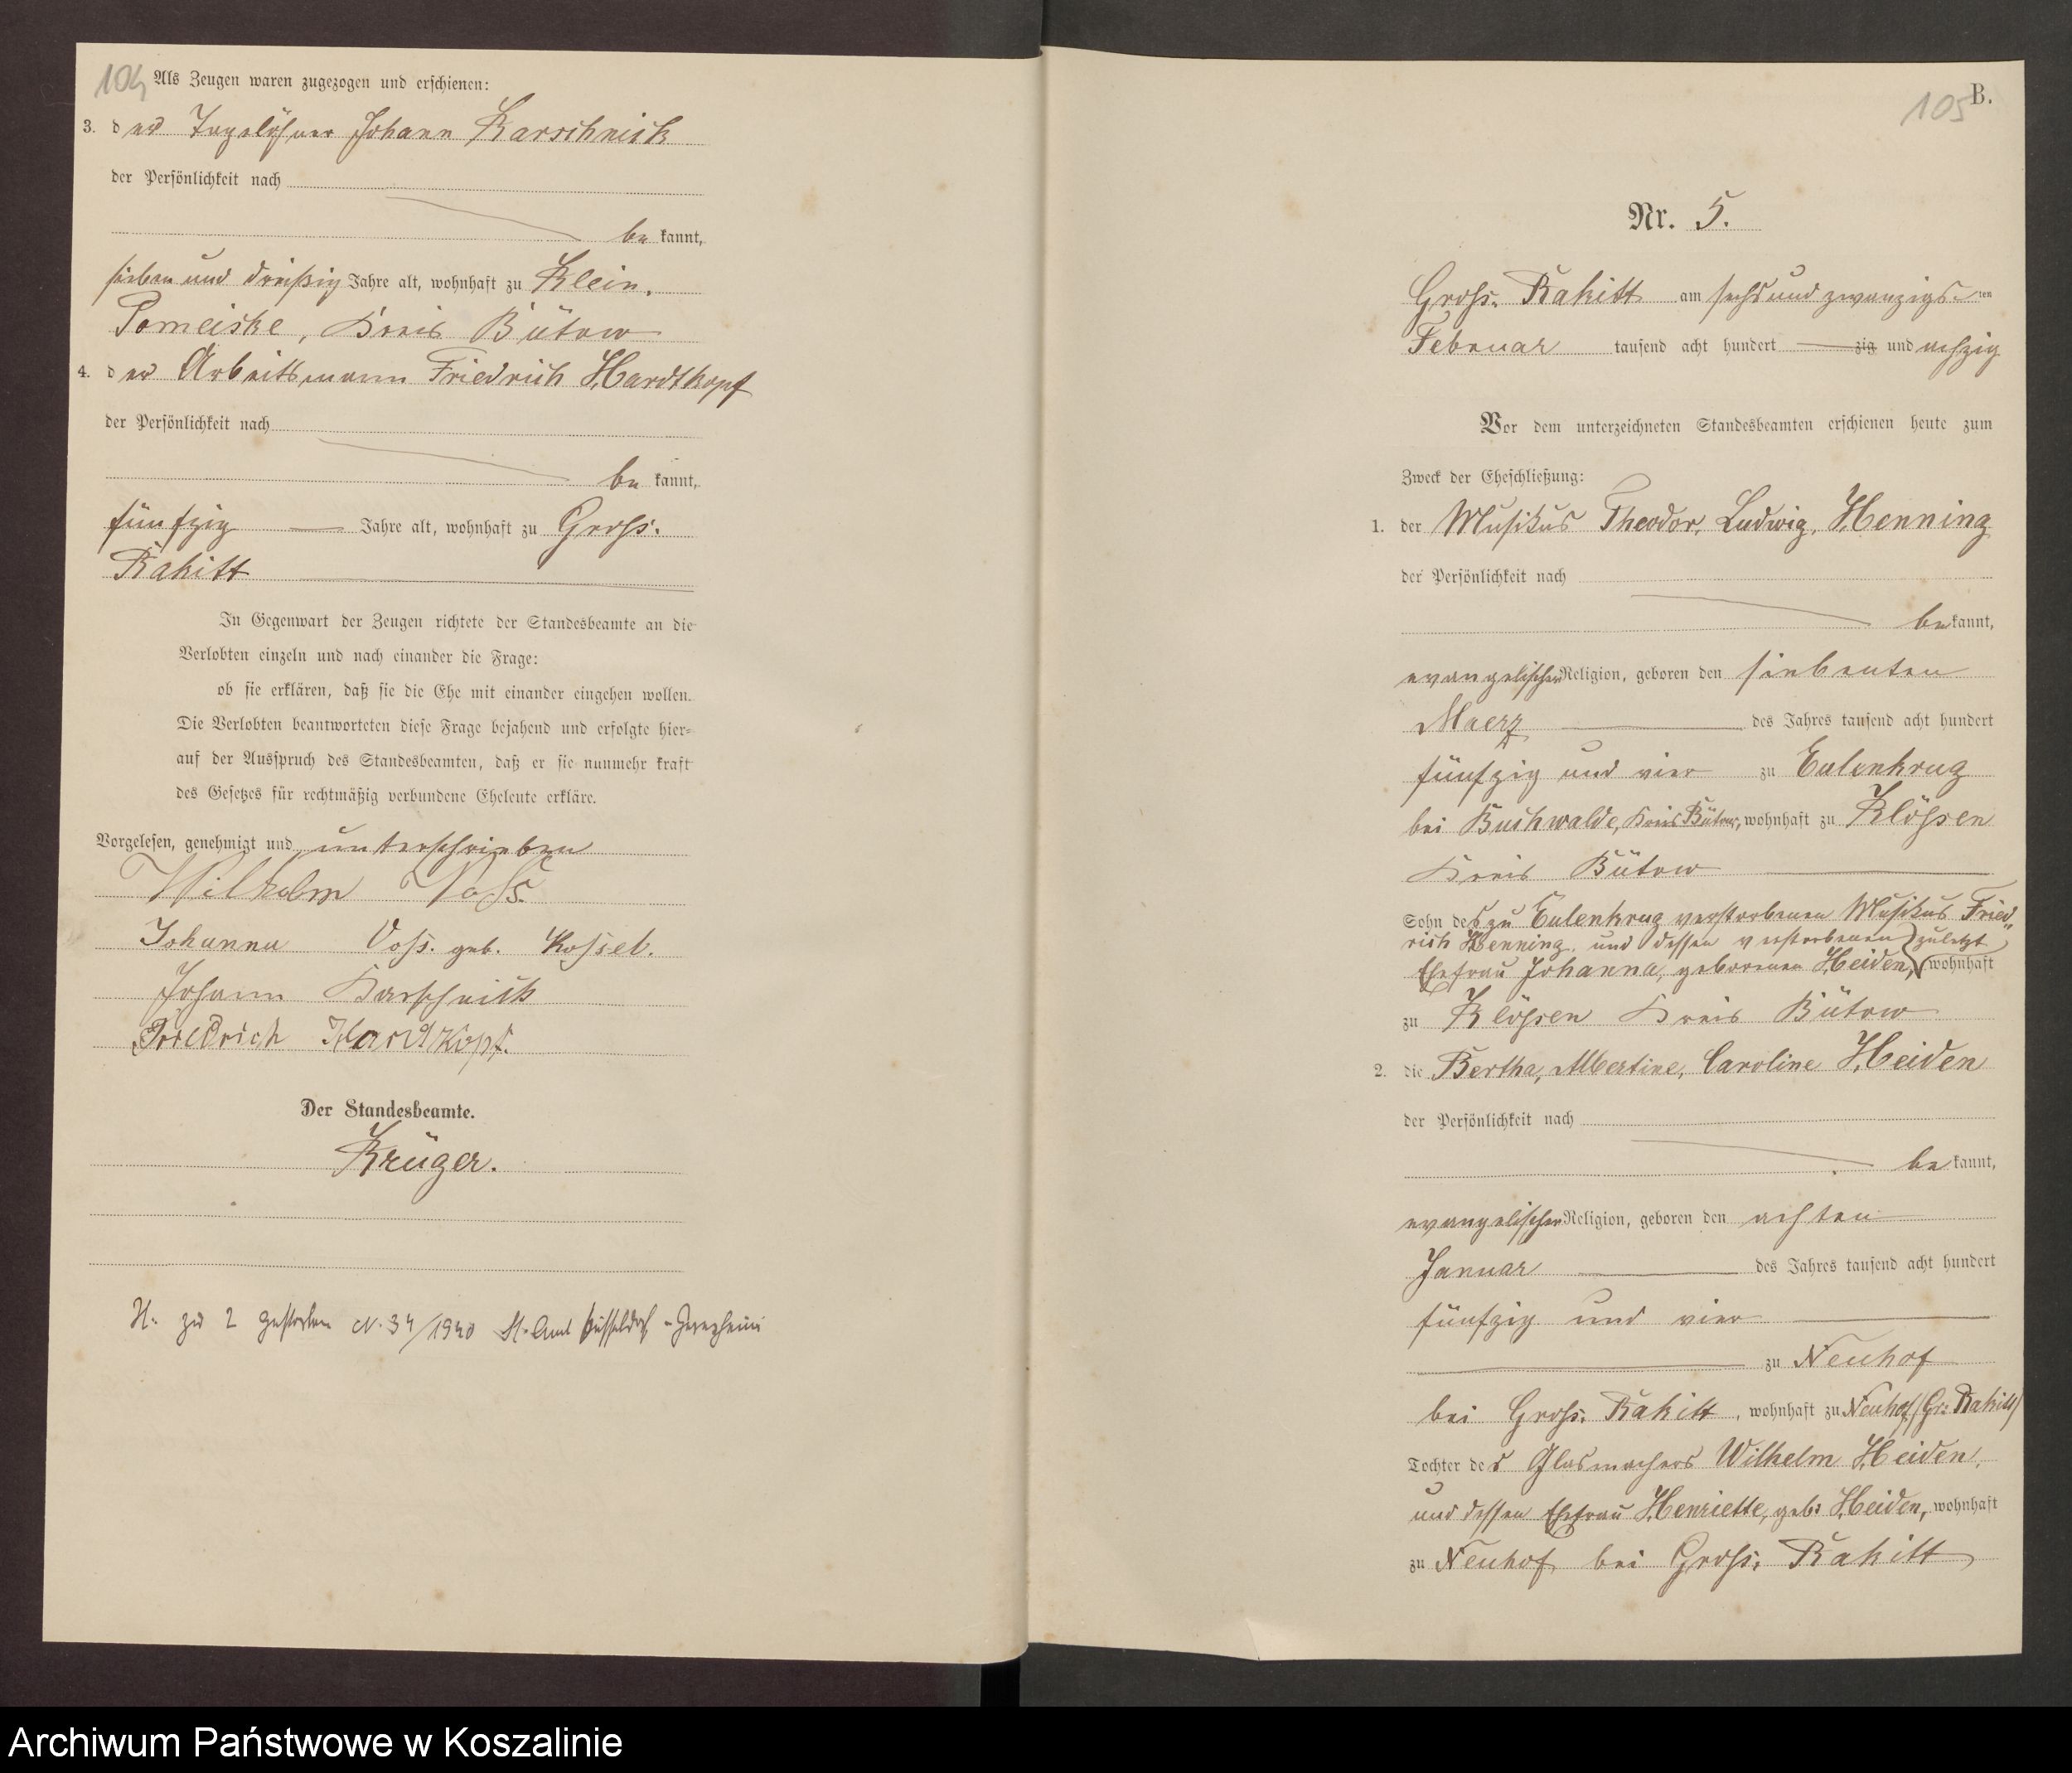 104
Als Zeugen waren zugezogen und erschienen:
3. der Tagelöhner Johann Karschnick
der Persönlichkeit nach
be kannt,
sieben und dreißig Jahre alt, wohnhaft zu Klein.
Pomeiske, Kreis Bütow
4. der Arbeitsmann Friedrich Hardtkopf
der Persönlichkeit nach
be kannt,
fünfzig Jahre alt, wohnhaft zu Gross.
Rakitt
In Gegenwart der Zeugen richtete der Standesbeamte an die
Verlobten einzeln und nach einander die Frage:
ob sie erklären, daß sie die Ehe mit einander eingehen wollen.
Die Verlobten beantworteten diese Frage bejahend und erfolgte hier=
auf der Ausspruch des Standesbeamten, daß er sie nunmehr kraft
des Gesetzes für rechtmäßig verbundene Eheleute erkläre.
Vorgelesen, genehmigt und unterschrieben
Wilhelm Voss.
Johanna Voss. geb. Kosset.
Johann Karschnick
Friedrich Hardtkopf.
Der Standesbeamte.
Krüger.
H. zu 2 gestorben N. 34/1940 St. Amt Düsseldorf - Gerresheim
105
B.
Nr. 5.
Gross. Rakitt am sechs und zwanzigsten
Februar tausend acht hundert zig und achzig
Vor dem unterzeichneten Standesbeamten erschienen heute zum
Zweck der Eheschließung:
1. der Musikus Theodor, Ludwig, Henning
der Persönlichkeit nach
be kannt,
evangelischer Religion, geboren den siebenten
Maerz des Jahres tausend acht hundert
fünfzig und vier zu Eulenkrug
bei Buchwalde, Kreis Bütow, wohnhaft zu Klössen
Kreis Bütow
Sohn des zu Eulenkrug verstorbenen Musikus Fried"
rich Henning. und dessen verstorbenen zuletzt
Ehefrau Johanna, geborenen Heiden, wohnhaft
zu Klössen Kreis Bütow
2. die Bertha, Albertine, Caroline Heiden
der Persönlichkeit nach
be kannt,
evangelischer Religion, geboren den achten
Januar des Jahres tausend acht hundert
fünfzig und vier
zu Neuhof
bei Gross. Rakitt, wohnhaft zu Neuhof /Gr: Rakitt/
Tochter des Glasmachers Wilhelm Heiden,
und dessen Ehefrau Henriette, geb: Heiden, wohnhaft
zu Neuhof bei Gross. Rakitt
Archiwum Państwowe w Koszalinie